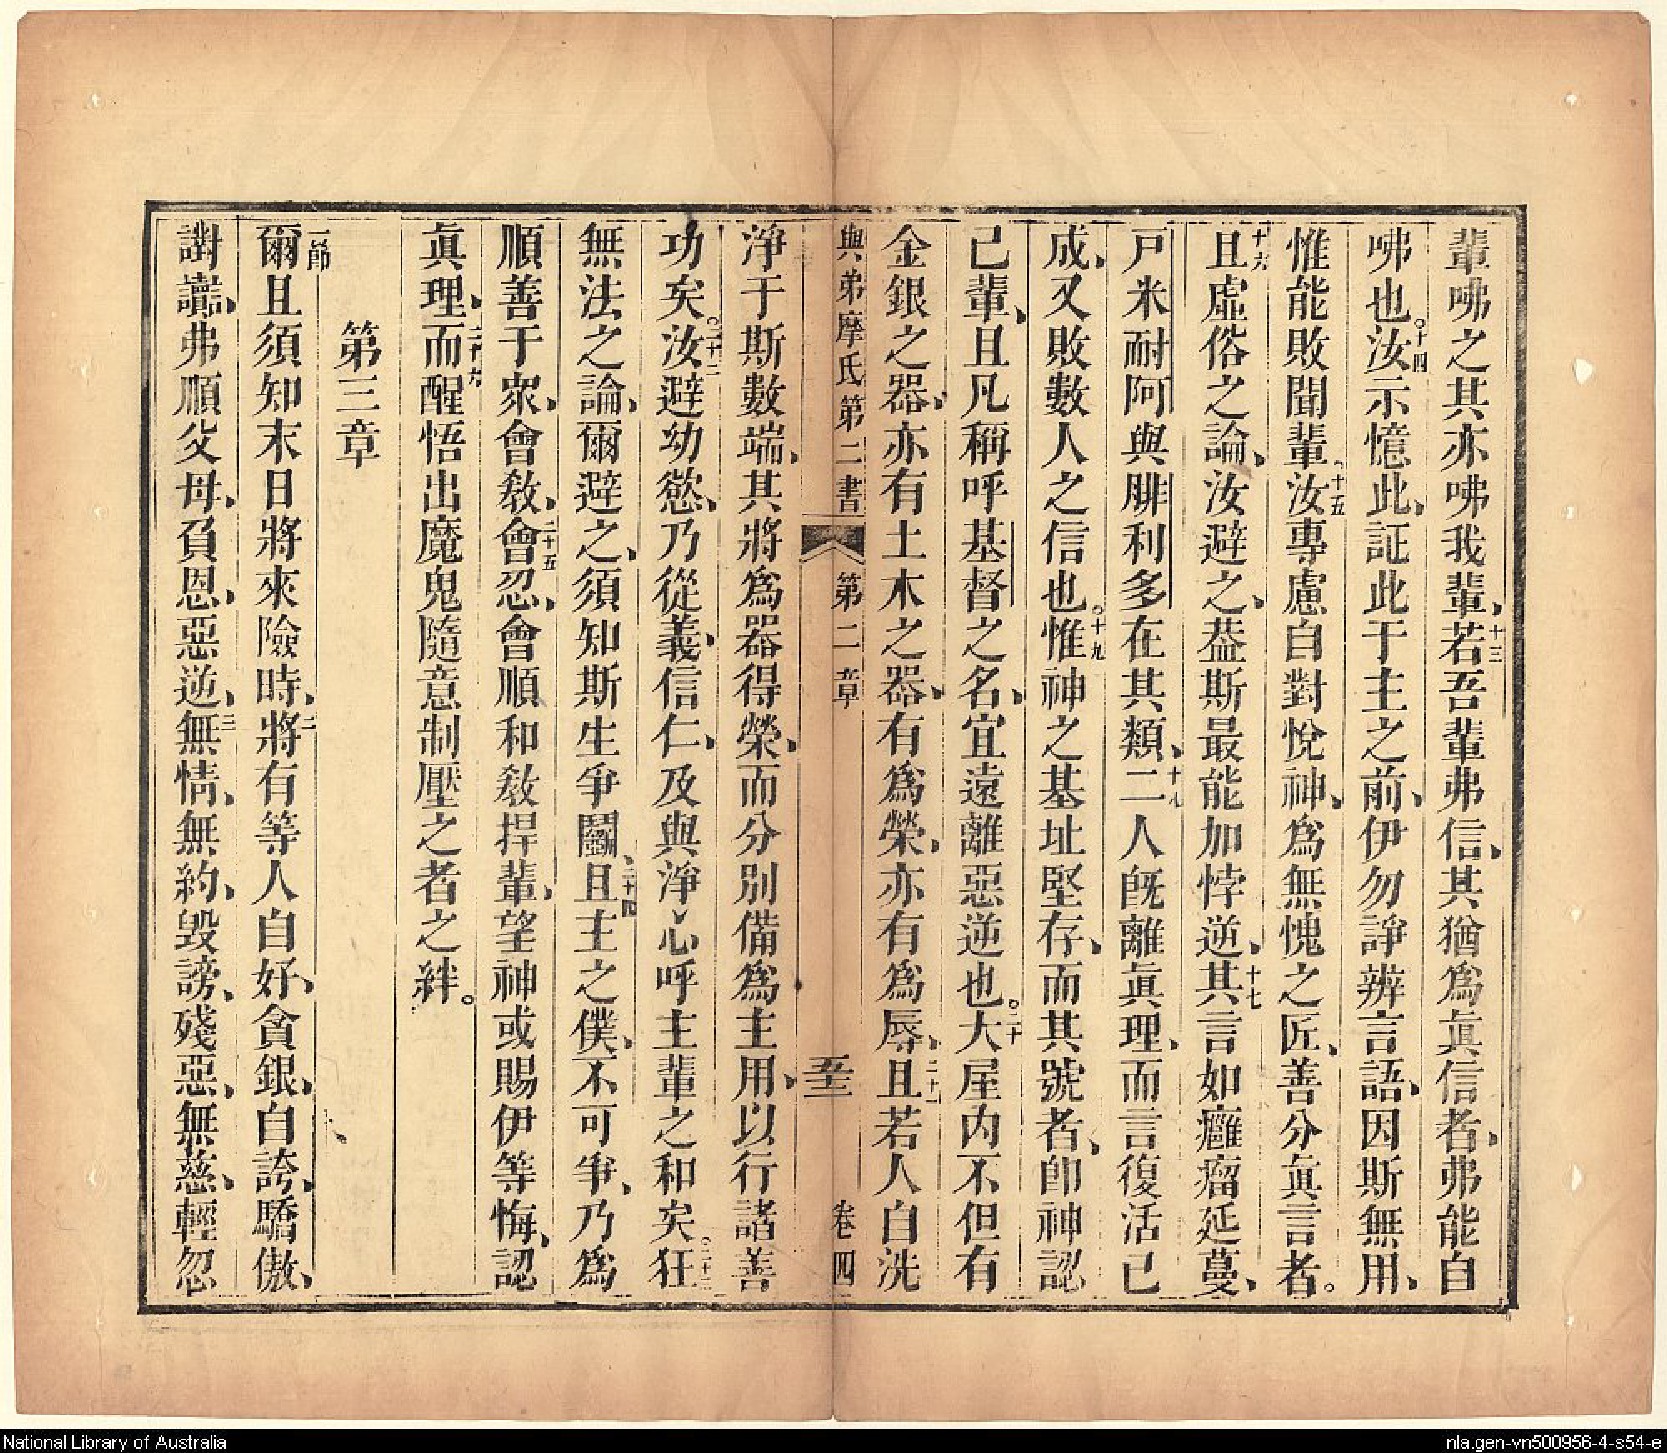 輩咈之其亦咈我輩、十三若吾輩弗信、其猶爲眞信者、弗能自
咈也。十四汝示憶此、証此于主之前、伊勿諍辨言語、因斯無用、
惟能敗聞輩。十五汝專慮自對悅神、爲無愧之匠、善分眞言者。
十六且虛俗之論、汝避之、葢斯最能加悖逆、十七其言如癰瘤延蔓、
戶米耐阿與腓利多在其類、十八二人旣離眞理、而言復活已
成、又敗數人之信也。十九惟神之基址堅存、而其號者、卽神認
己輩、且凡稱呼基督之名、宜遠離惡逆也。二十大屋內不但有
金銀之器、亦有土木之器、有爲榮、亦有爲辱、二十一且若人自洗
與弟摩氏第二書 第二章 卷四
淨于斯數端、其將爲器得榮、而分別備爲主用、以行諸善
功矣。二十二汝避幼慾、乃從義、信仁、及與淨心呼主輩之和矣。二十三狂
無法之論、爾避之、須知斯生爭鬪、二十四且主之僕、不可爭、乃爲
順善于衆、會敎、二十五會忍、會順和敎捍輩、望神或賜伊等悔、認
眞理、二十六而醒悟出魔鬼隨意制壓之者之絆。
第三章
一節爾且須知末日將來險時、二將有等人自好、貪銀、自誇、驕傲、
謝讟、弗順父母、負恩、惡逆、三無情、無約、毀謗、殘惡、無慈、輕忽